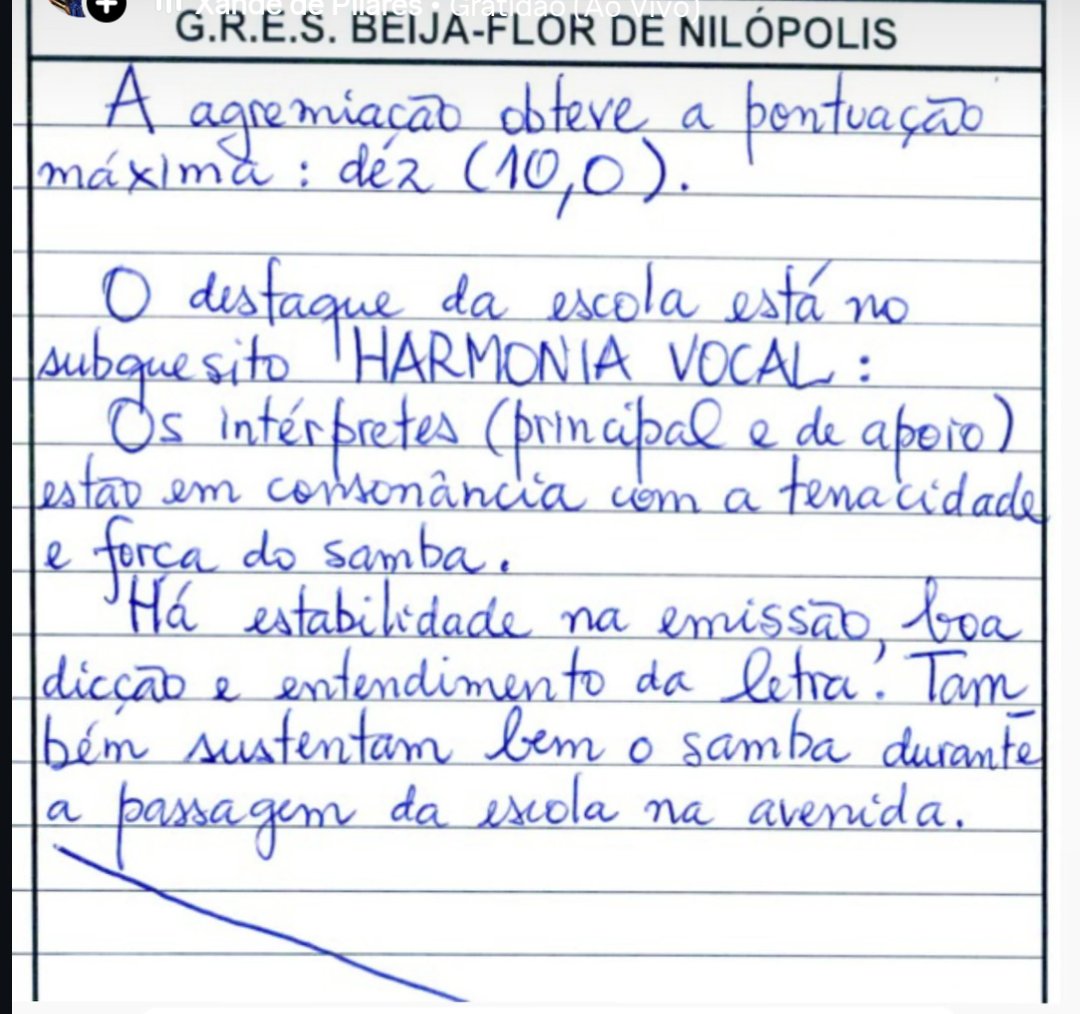 Xande de Pilares • Gratidão (Ao Vivo)
G.R.E.S. BEIJA-FLOR DE NILÓPOLIS
A agremiação obteve a pontuação
máxima: déz (10,0).
O destaque da escola está no
subquesito HARMONIA VOCAL:
Os intérpretes (principal e de apoio)
estão em consonância com a tenacidade
e força do samba.
Há estabilidade na emissão, boa
dicção e entendimento da letra. Tam
bém sustentam bem o samba durante
a passagem da escola na avenida.